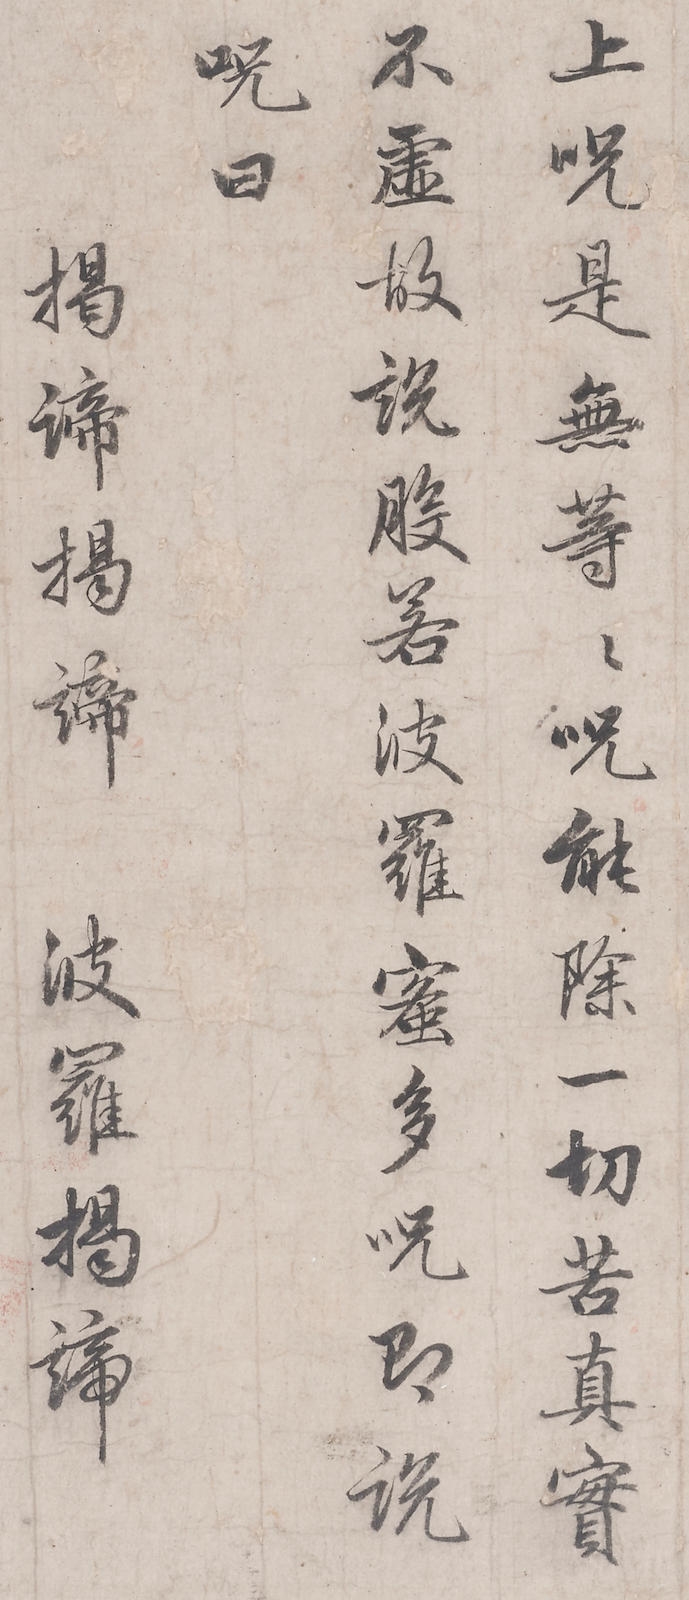 上呪是無等〻呪能除一切苦真實
不虛故說般若波羅蜜多呪即說
呪曰
揭諦揭諦 波羅揭諦